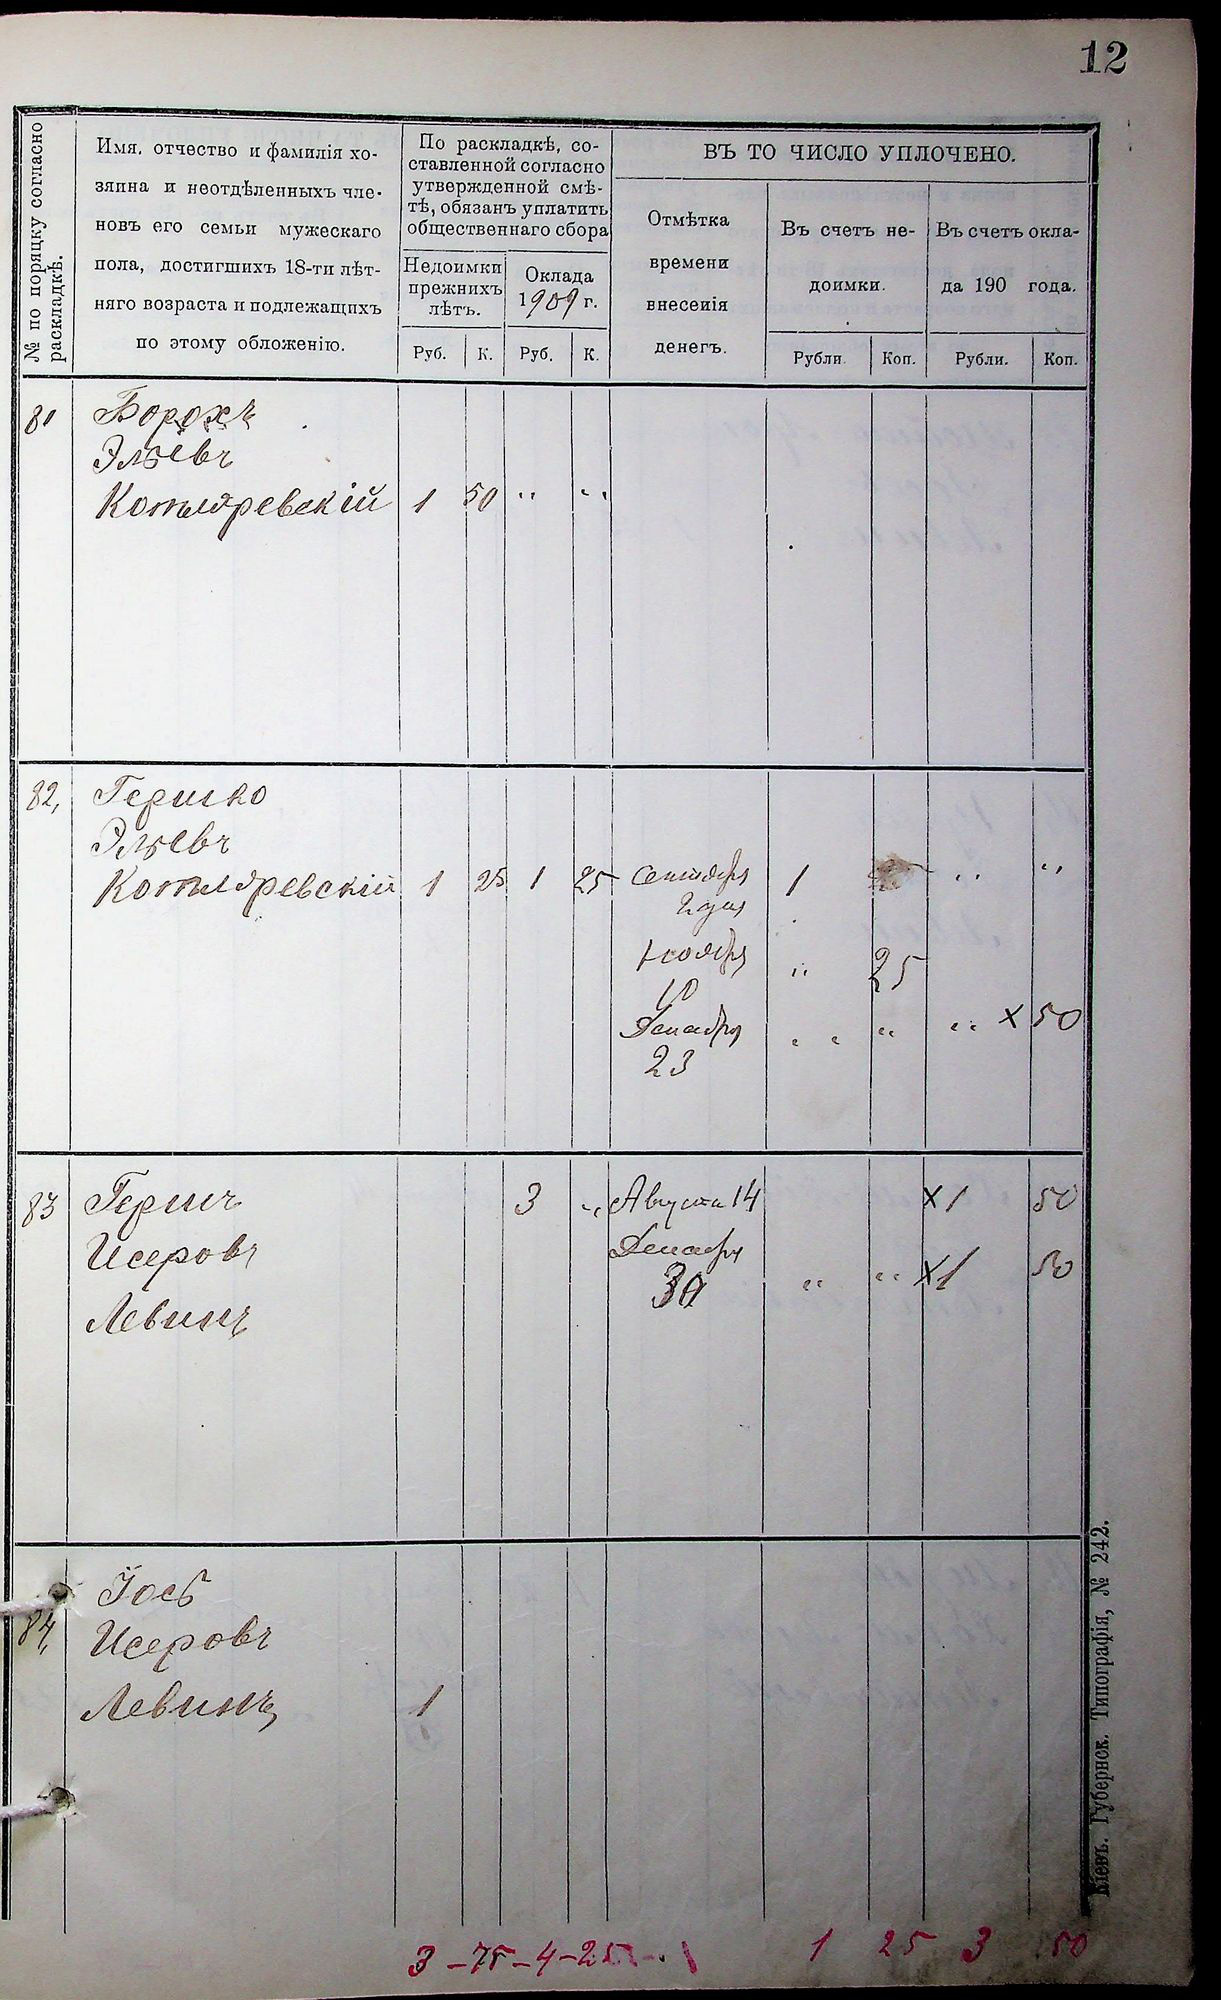 12
№ по порядку согласно
раскладкѣ.
Имя, отчество и фамилія хо-
зяина и неотдѣленныхъ чле-
новъ его семьи мужескаго
пола, достигшихъ 18-ти лѣт-
няго возраста и подлежащихъ
по этому обложенію.
По раскладкѣ, со-
ставленной согласно
утвержденной смѣ-
тѣ, обязанъ уплатить
общественнаго сбора
Недоимки
прежнихъ
лѣтъ.
Оклада
1909 г.
Руб. К. Руб. К.
ВЪ ТО ЧИСЛО УПЛОЧЕНО.
Отмѣтка
времени
внесенія
денегъ.
Въ счетъ не-
доимки.
Рубли Коп.
Въ счетъ окла-
да 190 года.
Рубли. Коп.
81 Борохъ
Эльевъ
Котляревскій 1 50 " "
82, Гершко
Эльевъ
Котляревскій 1 25 1 25 Сентября 1 " "
2 дня
Ноября " 25
10
Декабря " " " " × 50
23
83 Гершъ 3 " Августа 14 ×1 50
Исеровъ Декабря
30 " " ×1 50
Левинъ
84, Іось
Исеровъ
Левинъ 1
3 - 75 - 4 - 25 1 25 3 50
Кіевъ. Губернск. Типографія, № 242.